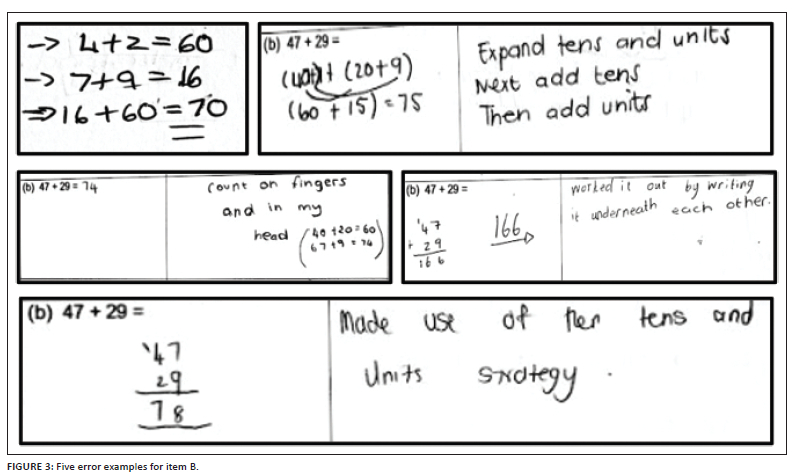 → 4+2=60
→ 7+9=16
⇒16+60=70
(b) 47 + 29 =
+ (20+9)
(60 + 15) = 75
Expand tens and units
Next add tens
Then add units
(b) 47 + 29 = 74
count on fingers
and in my
head (40 +20=60
67+9 = 74)
(b) 47 + 29 =
'47
+ 29
166
166
worked it out by writing
it underneath each other.
(b) 47 + 29 =
'47
29
78
Made use of her tens and
units
FIGURE 3: Five error examples for item B.